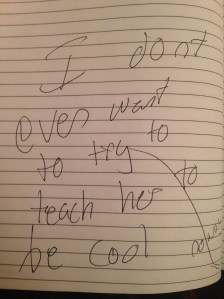 I dont
even want
to try to
teach her to
be cool